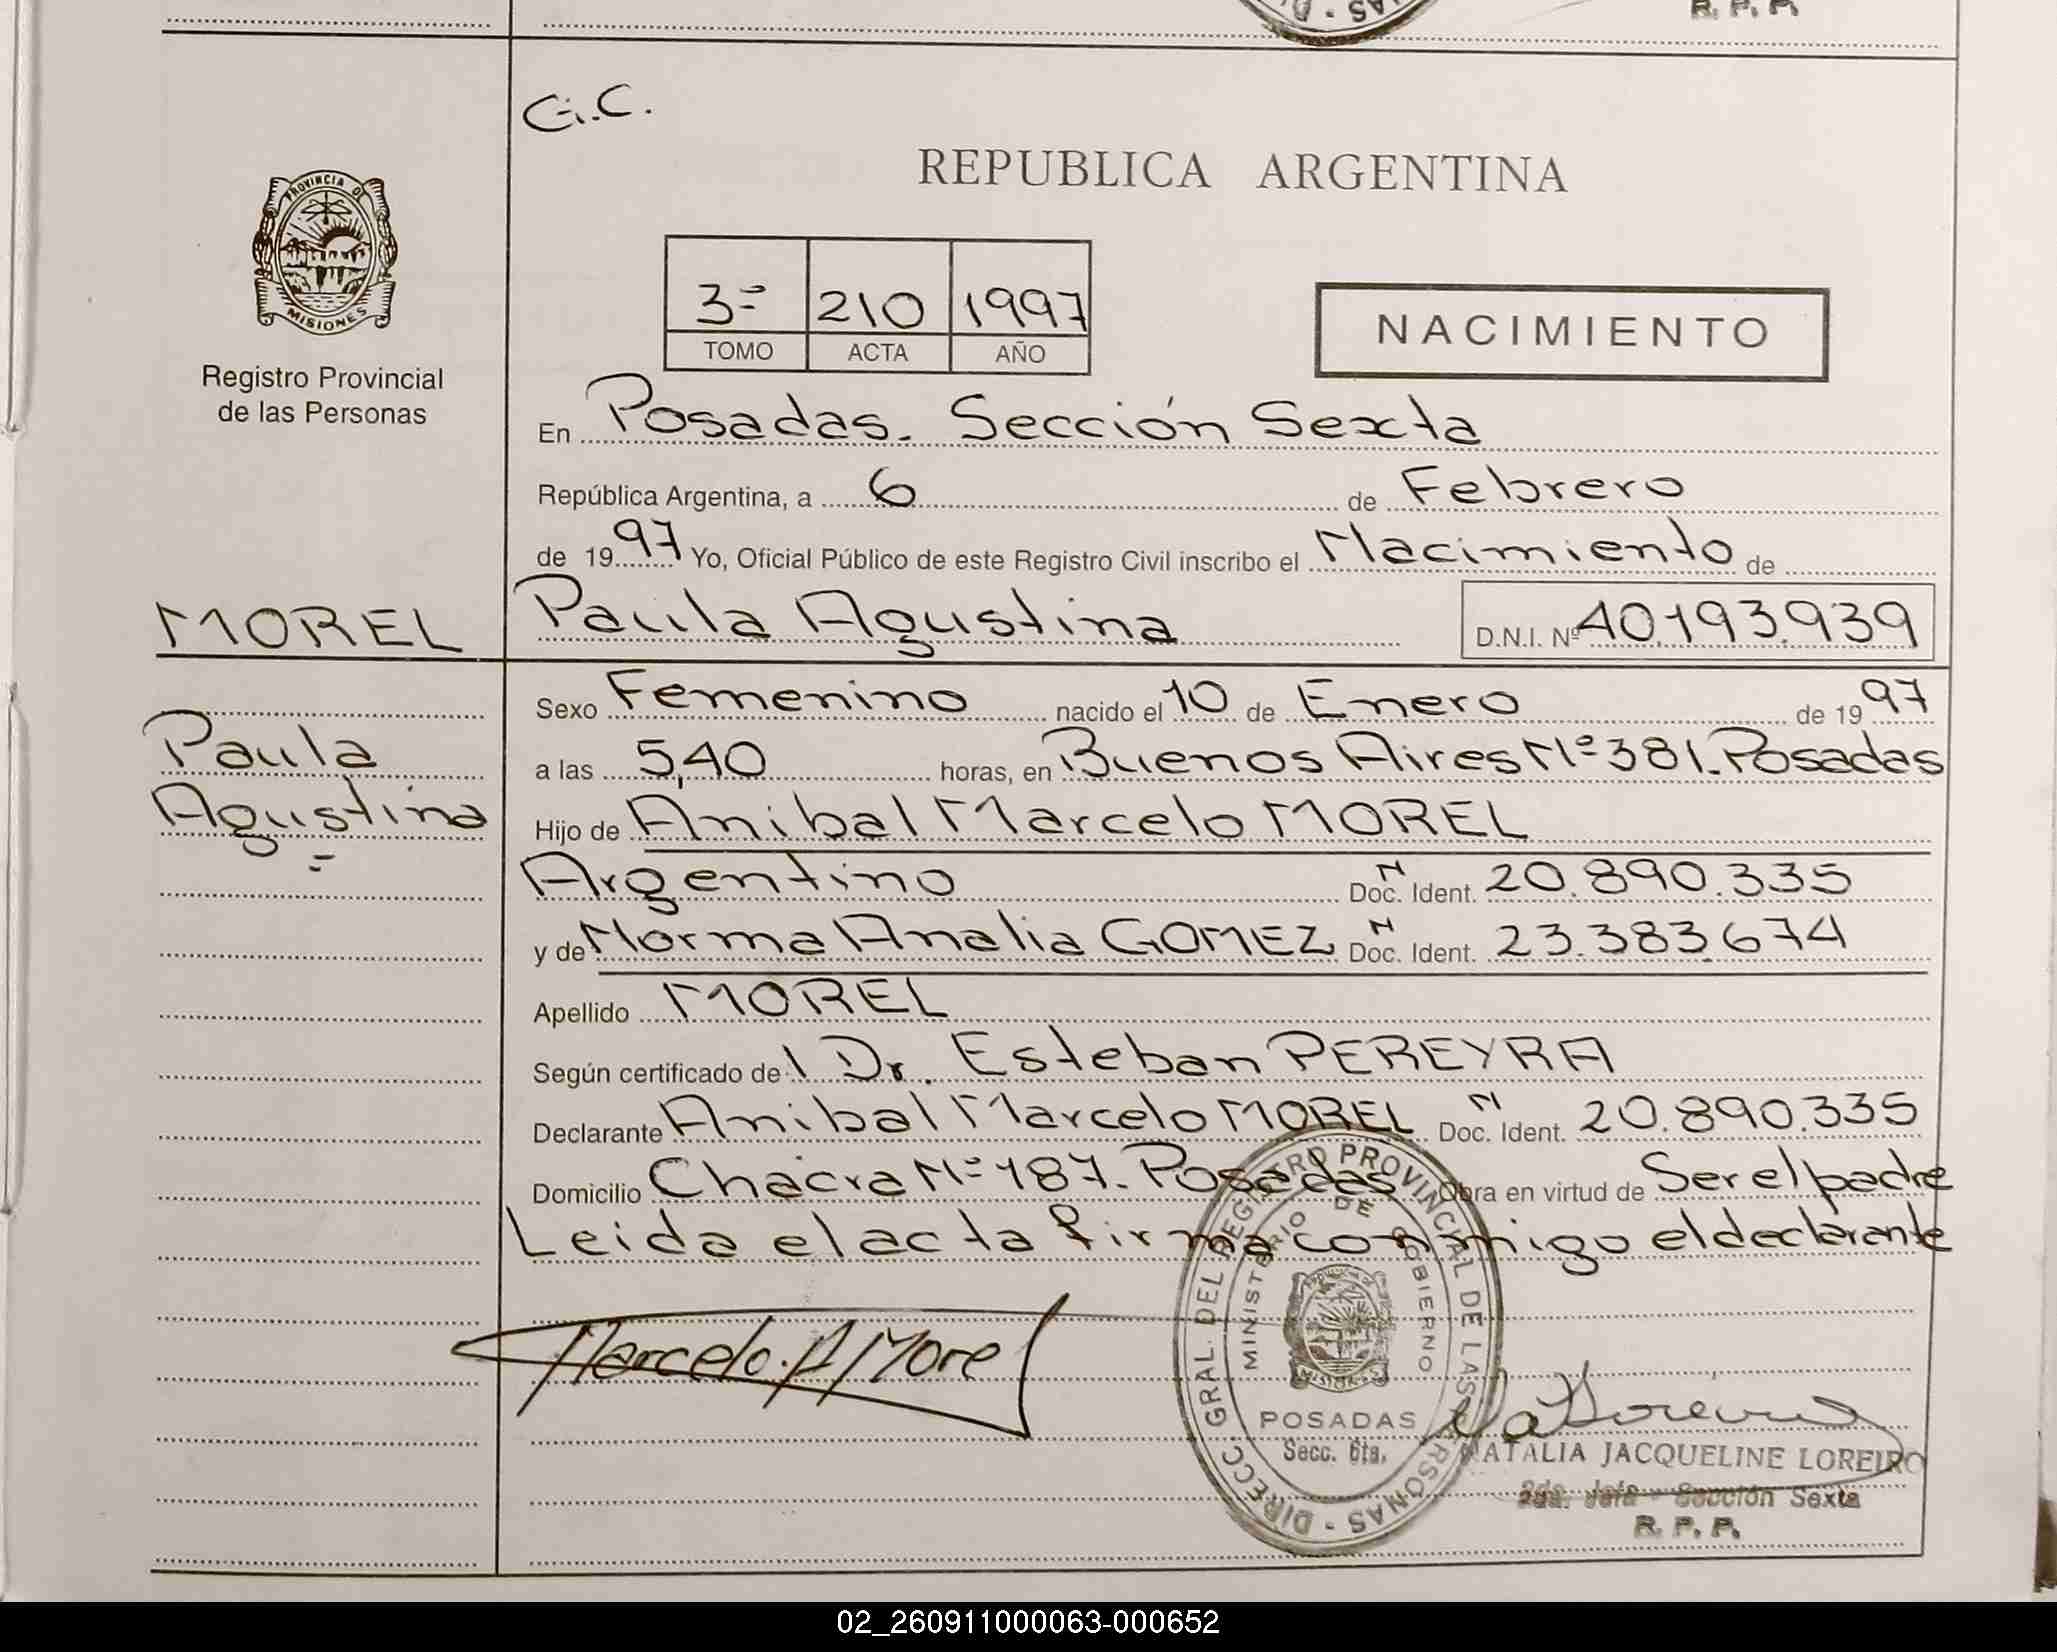 R. P. P.
G.C.
REPUBLICA ARGENTINA
PROVINCIA DE
MISIONES
Registro Provincial
de las Personas
3= 210 1997
TOMO ACTA AÑO
NACIMIENTO
En Posadas. Sección Sexta
República Argentina, a 6 de Febrero
de 1997 Yo, Oficial Público de este Registro Civil inscribo el Nacimiento de
MOREL
Paula Agustina D.N.I. Nº 40.193.939
Sexo Femenino nacido el 10 de Enero de 1997
Paula
Agustina
=
a las 5,40 horas, en Buenos Aires Nº 381. Posadas
Hijo de Anibal Marcelo MOREL
Argentino N Doc. Ident. 20.890.335
y de Norma Analia GOMEZ N Doc. Ident. 23.383.674
Apellido MOREL
Según certificado de l Dr. Esteban PEREYRA
Declarante Anibal Marcelo MOREL N Doc. Ident. 20.890.335
Domicilio Chacra Nº 187. Posadas Obra en virtud de Ser el padre
Leida el acta firma conmigo el declarante
Marcelo. A Morel
DIRECC. GRAL. DEL REGISTRO PROVINCIAL DE LAS PERSONAS -
MINISTERIO DE GOBIERNO
MISIONES
POSADAS
Secc. 6ta.
NATALIA JACQUELINE LOREIRO
2da. Jefa - Sección Sexta
R. P. P.
02_260911000063-000652